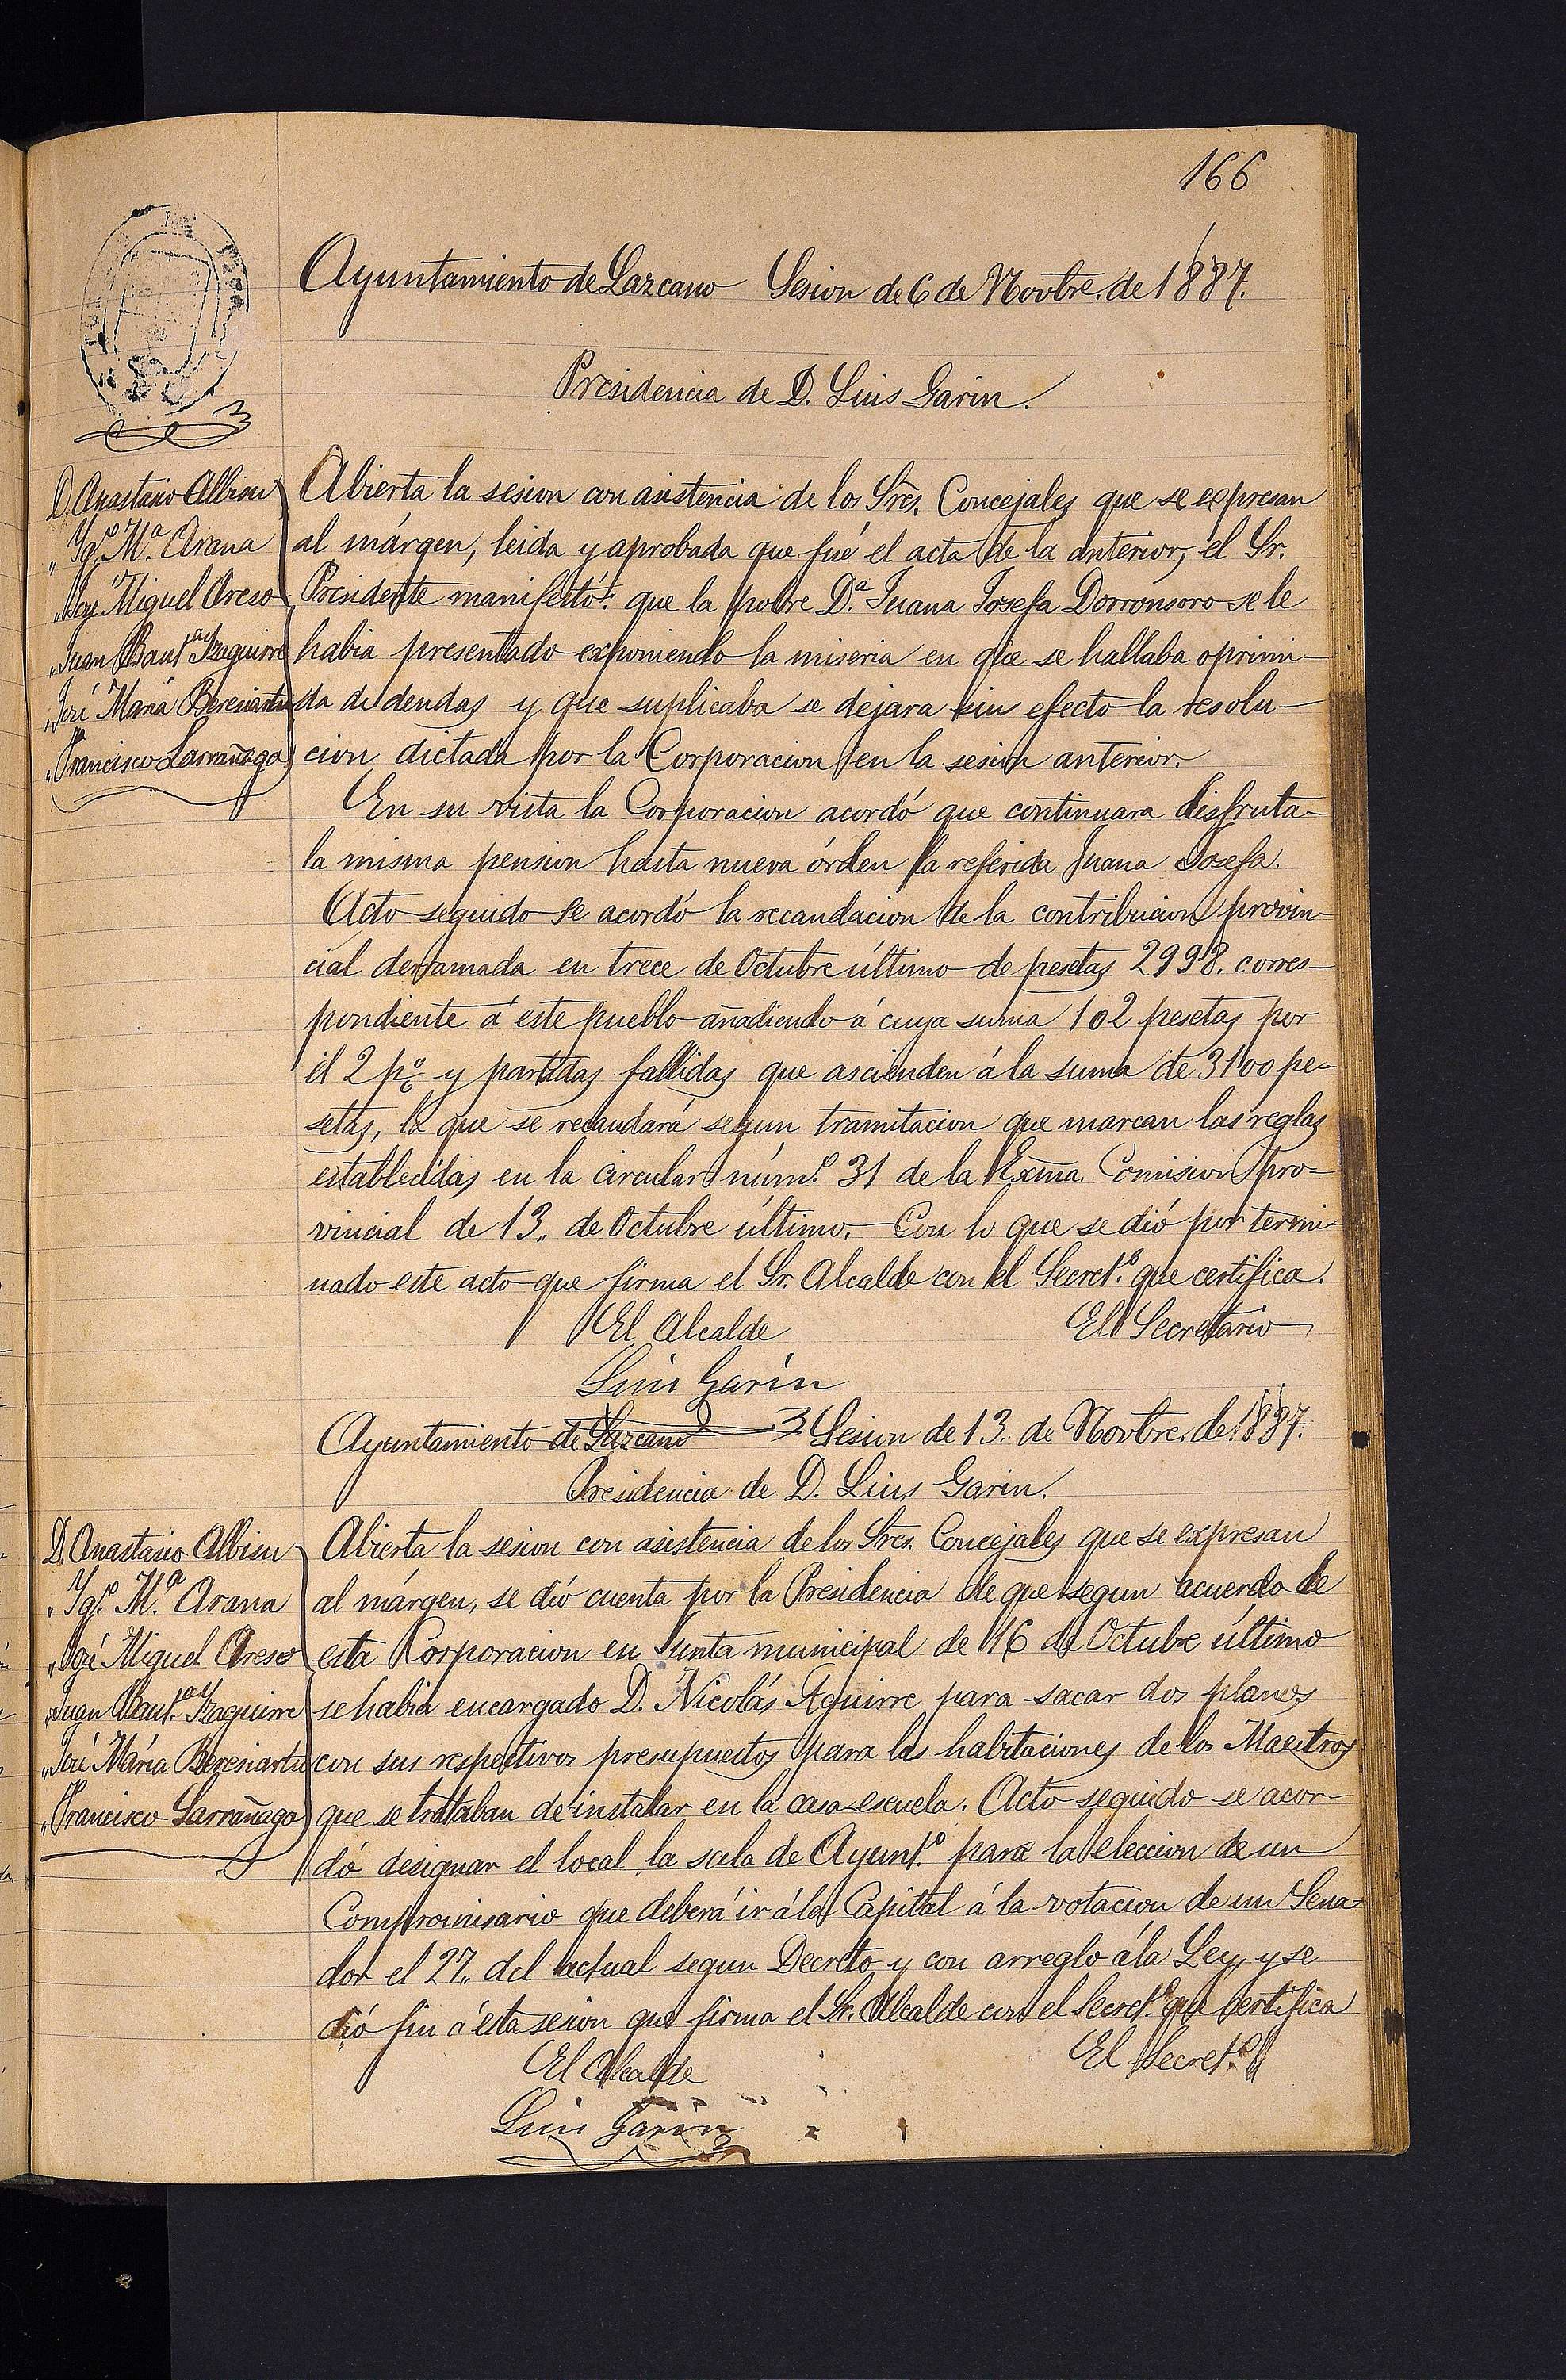 166
Ayuntamiento de Lazcano Sesion de 6 de Novbre. de 1887.
Presidencia de D. Luis Garin.
D. Anastasio Albisu
„ Ygº. Mª. Arana
„ José Miguel Oreso
„ Juan Bautª. Yzaguirre
„ José María Beresiartu
„ Francisco Larrañaga
Abierta la sesion con asistencia de los Sres. Concejales que se expresan
al márgen, leida y aprobada que fué el acta de la anterior, el Sr.
Presidente manifestó: que la pobre Dª. Juana Josefa Dorronsoro se le
habia presentado exponiendo la miseria en que se hallaba oprimi-
da de deudas y que suplicaba se dejara sin efecto la resolu-
cion dictada por la Corporacion en la sesion anterior.
En su vista la Corporacion acordó que continuara disfruta-
la misma pension hasta nueva órden la referida Juana Josefa.
Acto seguido se acordó la recaudacion de la contribucion provin-
cial derramada en trece de Octubre último de pesetas 2998. corres-
pondiente á este pueblo añadiendo á cuya suma 102 pesetas por
el 2 p% y partidas fallidas que ascienden á la suma de 3100 pe-
setas, la que se recaudará segun tramitacion que marcan las reglas
establecidas en la circular númº. 31 de la Exma. Comision pro-
vincial de 13„ de Octubre último. Con lo que se dió por termi-
nado este acto que firma el Sr. Alcalde con el Secretº. que certifica.
El Alcalde El Secretario
Luis Garin
Ayuntamiento de Lazcano Sesion de 13„ de Novbre. de 1887.
Presidencia de D. Luis Garin.
D. Anastasio Albisu
„ Ygº. Mª. Arana
„ José Miguel Oreso
„ Juan Bautª. Yzaguirre
„ José María Beresiartu
„ Francisco Larrañaga
Abierta la sesion con asistencia de los Sres. Concejales que se expresan
al márgen, se dió cuenta por la Presidencia de que segun acuerdo de
esta Corporacion en Junta municipal de 16 de Octubre último
se habia encargado D. Nicolás Aguirre para sacar dos planos
con sus respectivos presupuestos para las habitaciones de los Maestros
que se trataban de instalar en la casa escuela. Acto seguido se acor-
dó designar el local la sala de Ayuntº. para la eleccion de un
Compromisario que deberá ir á la Capital á la votacion de un Sena-
dor el 27„ del actual segun Decreto y con arreglo á la Ley, y se
dió fin á esta sesion que firma el Sr. Alcalde con el Secretº. que certifica
El Alcalde El Secretº.
Luis Garin